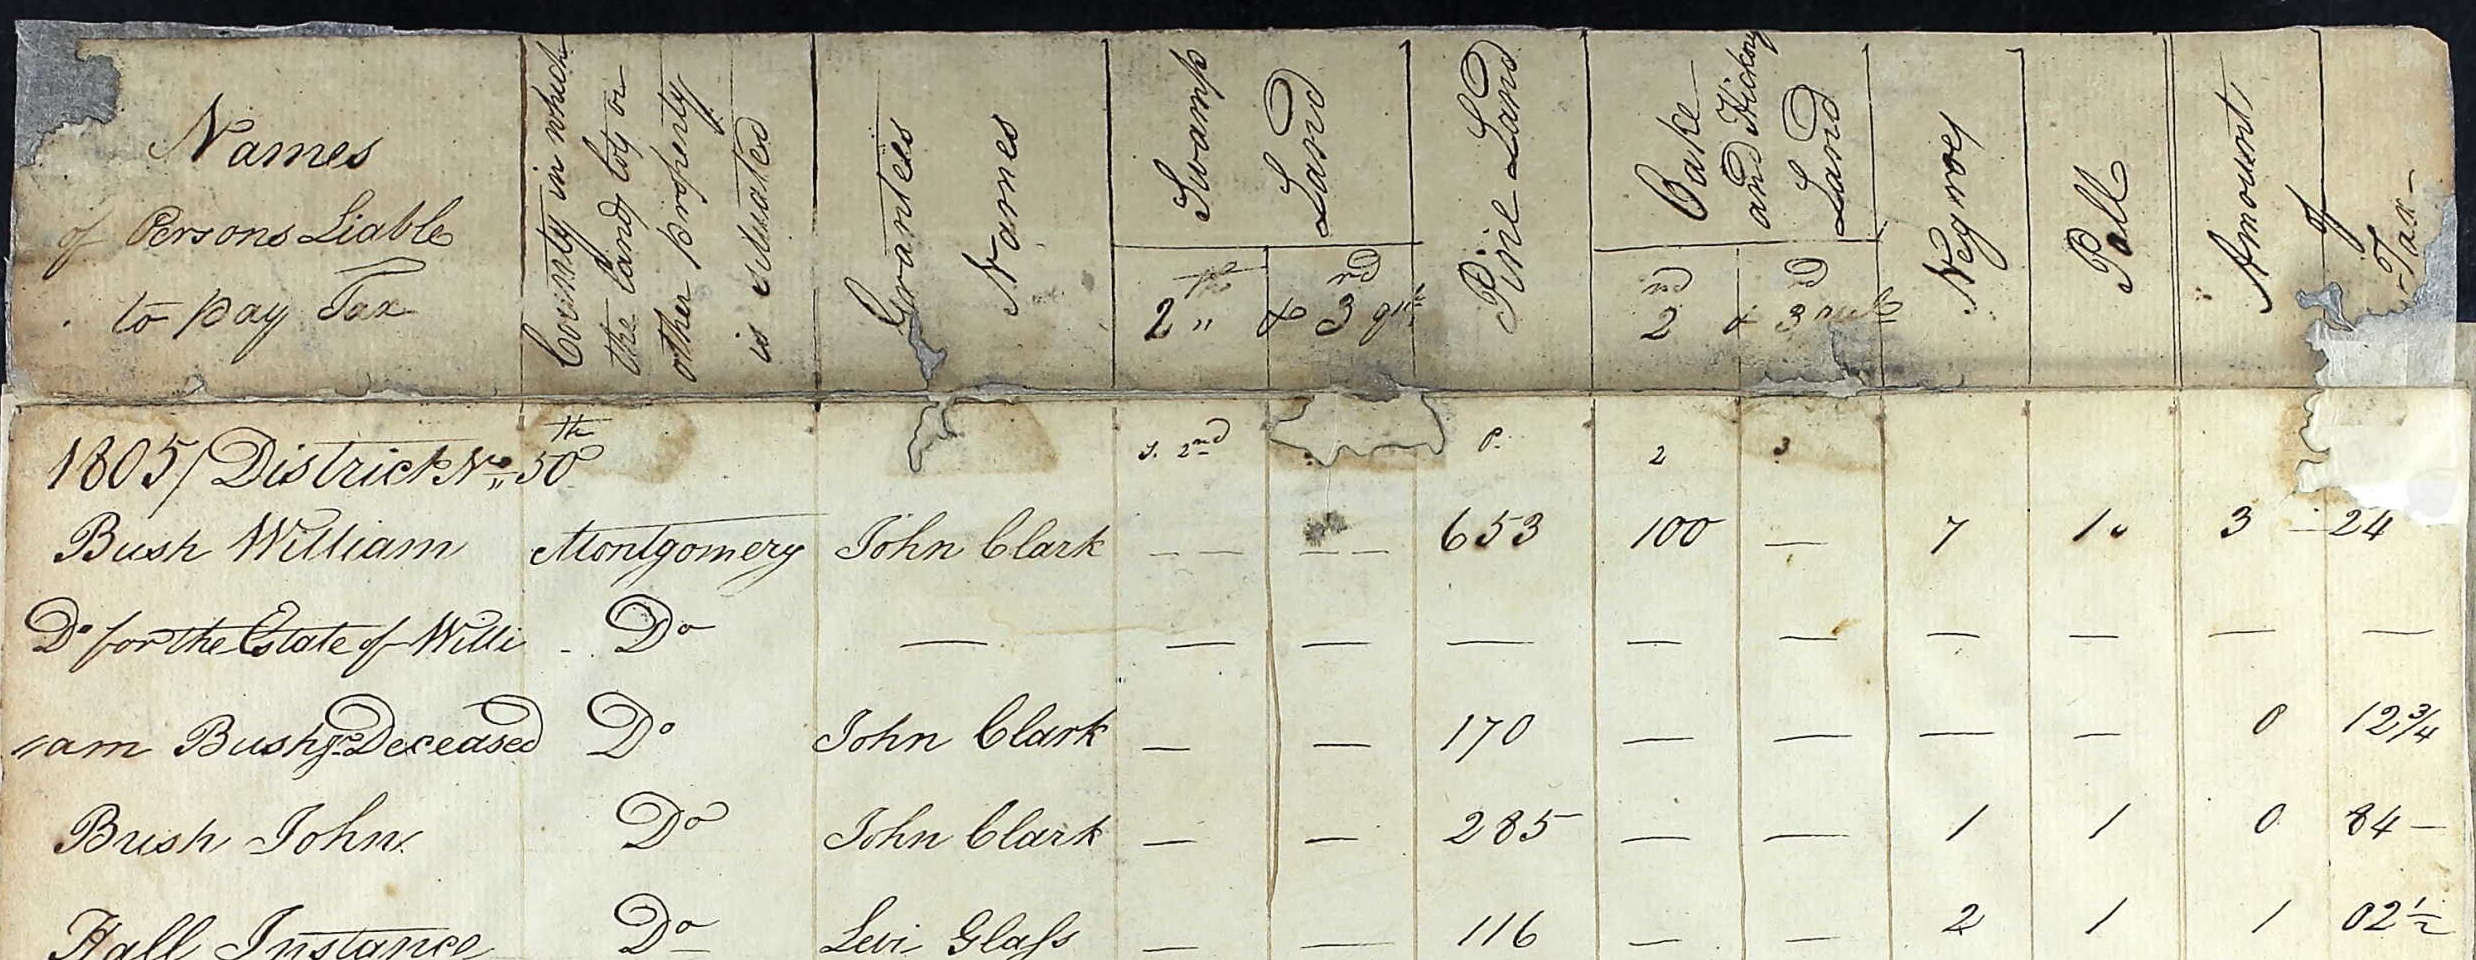 Names
of Persons Liable
to pay Tax
County in which
the land lots or
other property
is situated
Grantees
Names
Swamp
Land
2th " & 3rd qu
Pine Land
Oake
and Hickory
Land
2nd & 3rd
Negroes
Poll
Amount
of
Tax
1805/ District No 50th S. 2nd P. 2 3
Bush William Montgomery John Clark — — — — 653 100 — 7 1 3 — 24
Do for the Estate of Willi Do — — — — — — — — — —
am Bush Deceased Do John Clark — — 170 — — — — 0 12 3/4
Bush John Do John Clark — — 285 — — 1 1 0 84 —
Hall Instance Do Levi Glass — — 116 — — 2 1 1 02 1/2